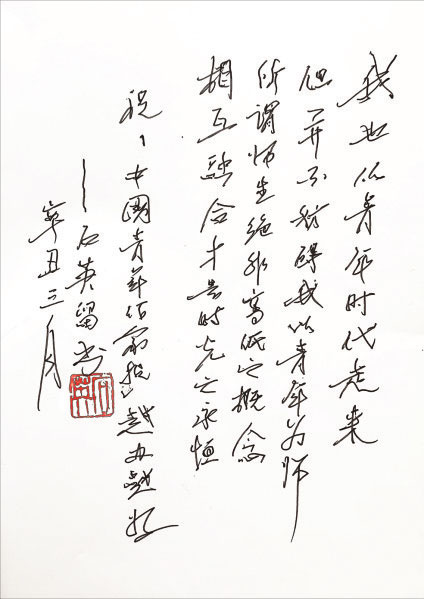 我也从青年时代走来
但并不妨碍我以青年为师
所谓师生绝非高低之概念
相互融合才是时光之永恒
祝《中国青年作家报》越办越好
——石英留书
辛丑三月